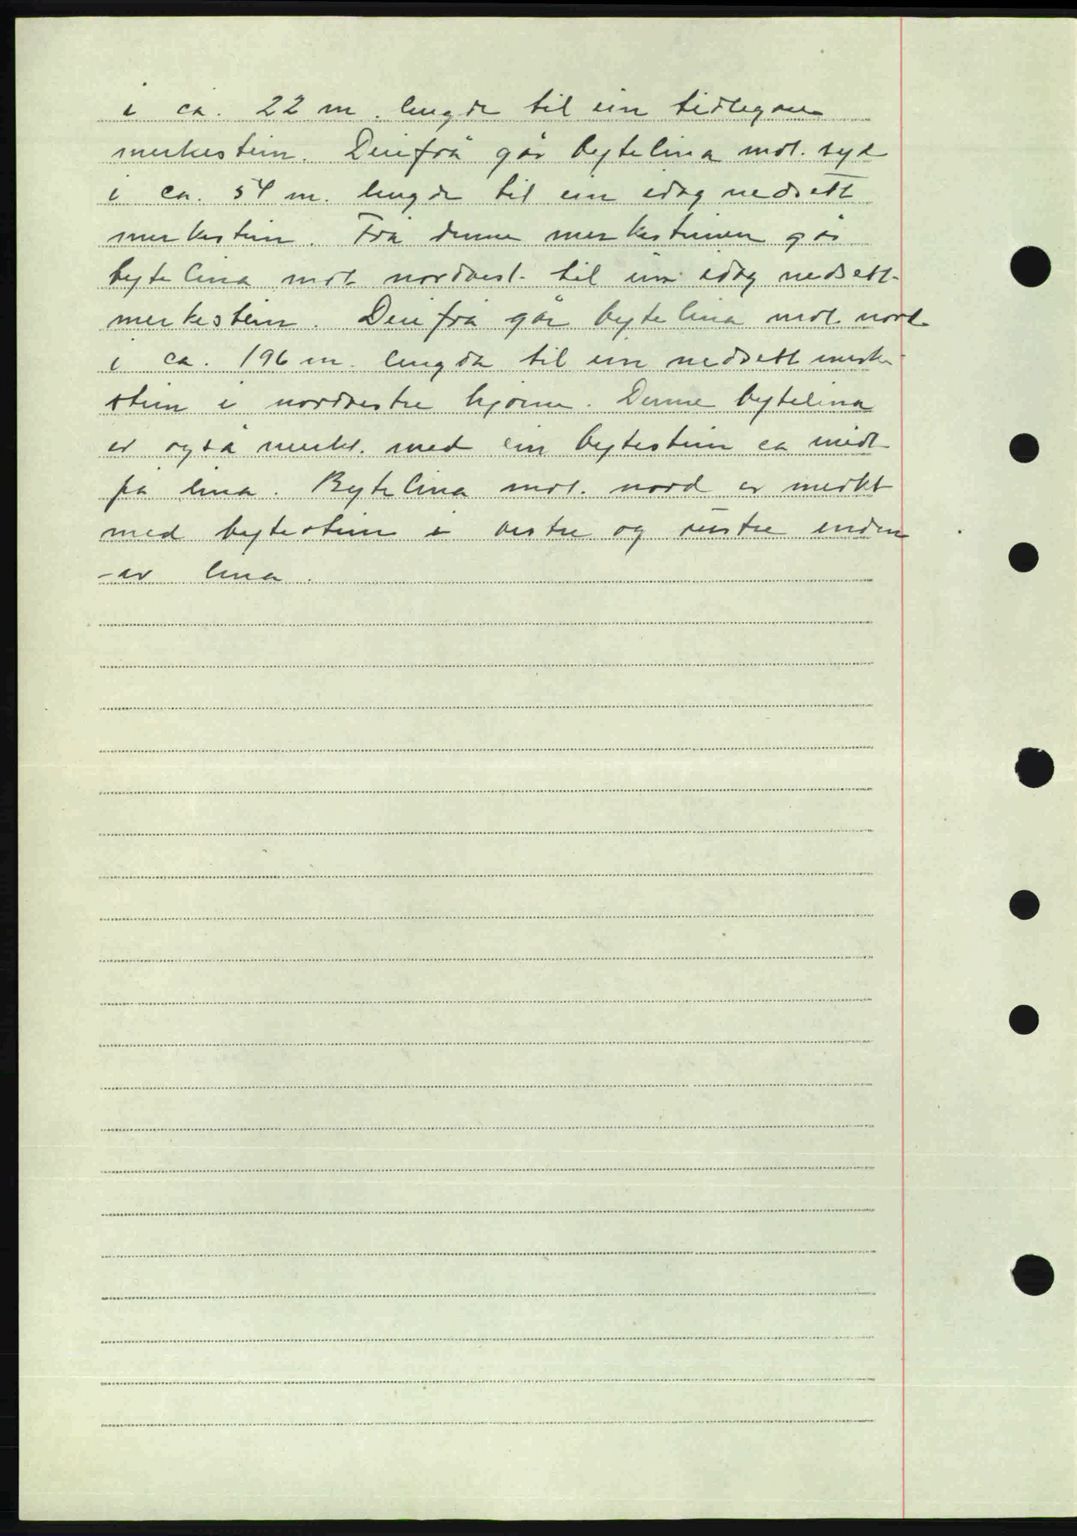 i ca. 22 m. lengde til ein tidlegare
merkestein. Derifrå går bytelina mot syd
i ca. 54 m. lengde til ein idag nedsett
merkestein. Frå denne merkesteinen går
bytelina mot nordvest til ein idag nedsett
merkestein. Derifrå går bytelina mot nord
i ca. 196 m. lengde til ein nedsett merke-
stein i nordvestre hjørne. Denne bytelina
er også merkt med ein bytestein ca midt
på lina. Bytelina mot nord er merkt
med bytestein i vestre og austre enden
av lina.